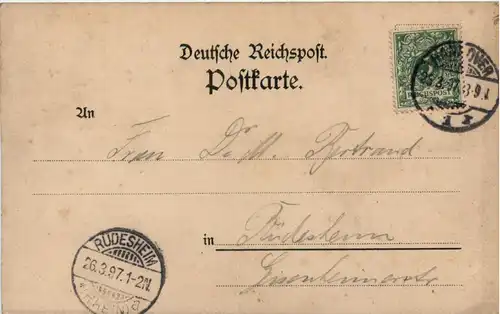 Deutsche Reichspost.
Postkarte.
HANNOVER
An
Frau Dr. M. Bertrand
in Rüdesheim
RÜDESHEIM
26.3.97.1-2N.
(RHEIN)